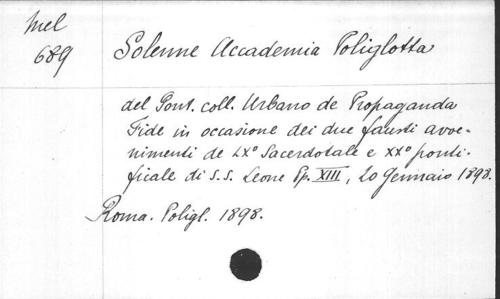 Mel
689
Solenne Accademia Poliglotta
del Pont. coll. Urbano de Propaganda
Fide in occasione dei due fausti avve-
nimenti de LX° Sacerdotale e XX° ponti-
ficale di S.S. Leone Pp. XIII, 20 Gennaio 1898.
Roma. Poligl. 1898.